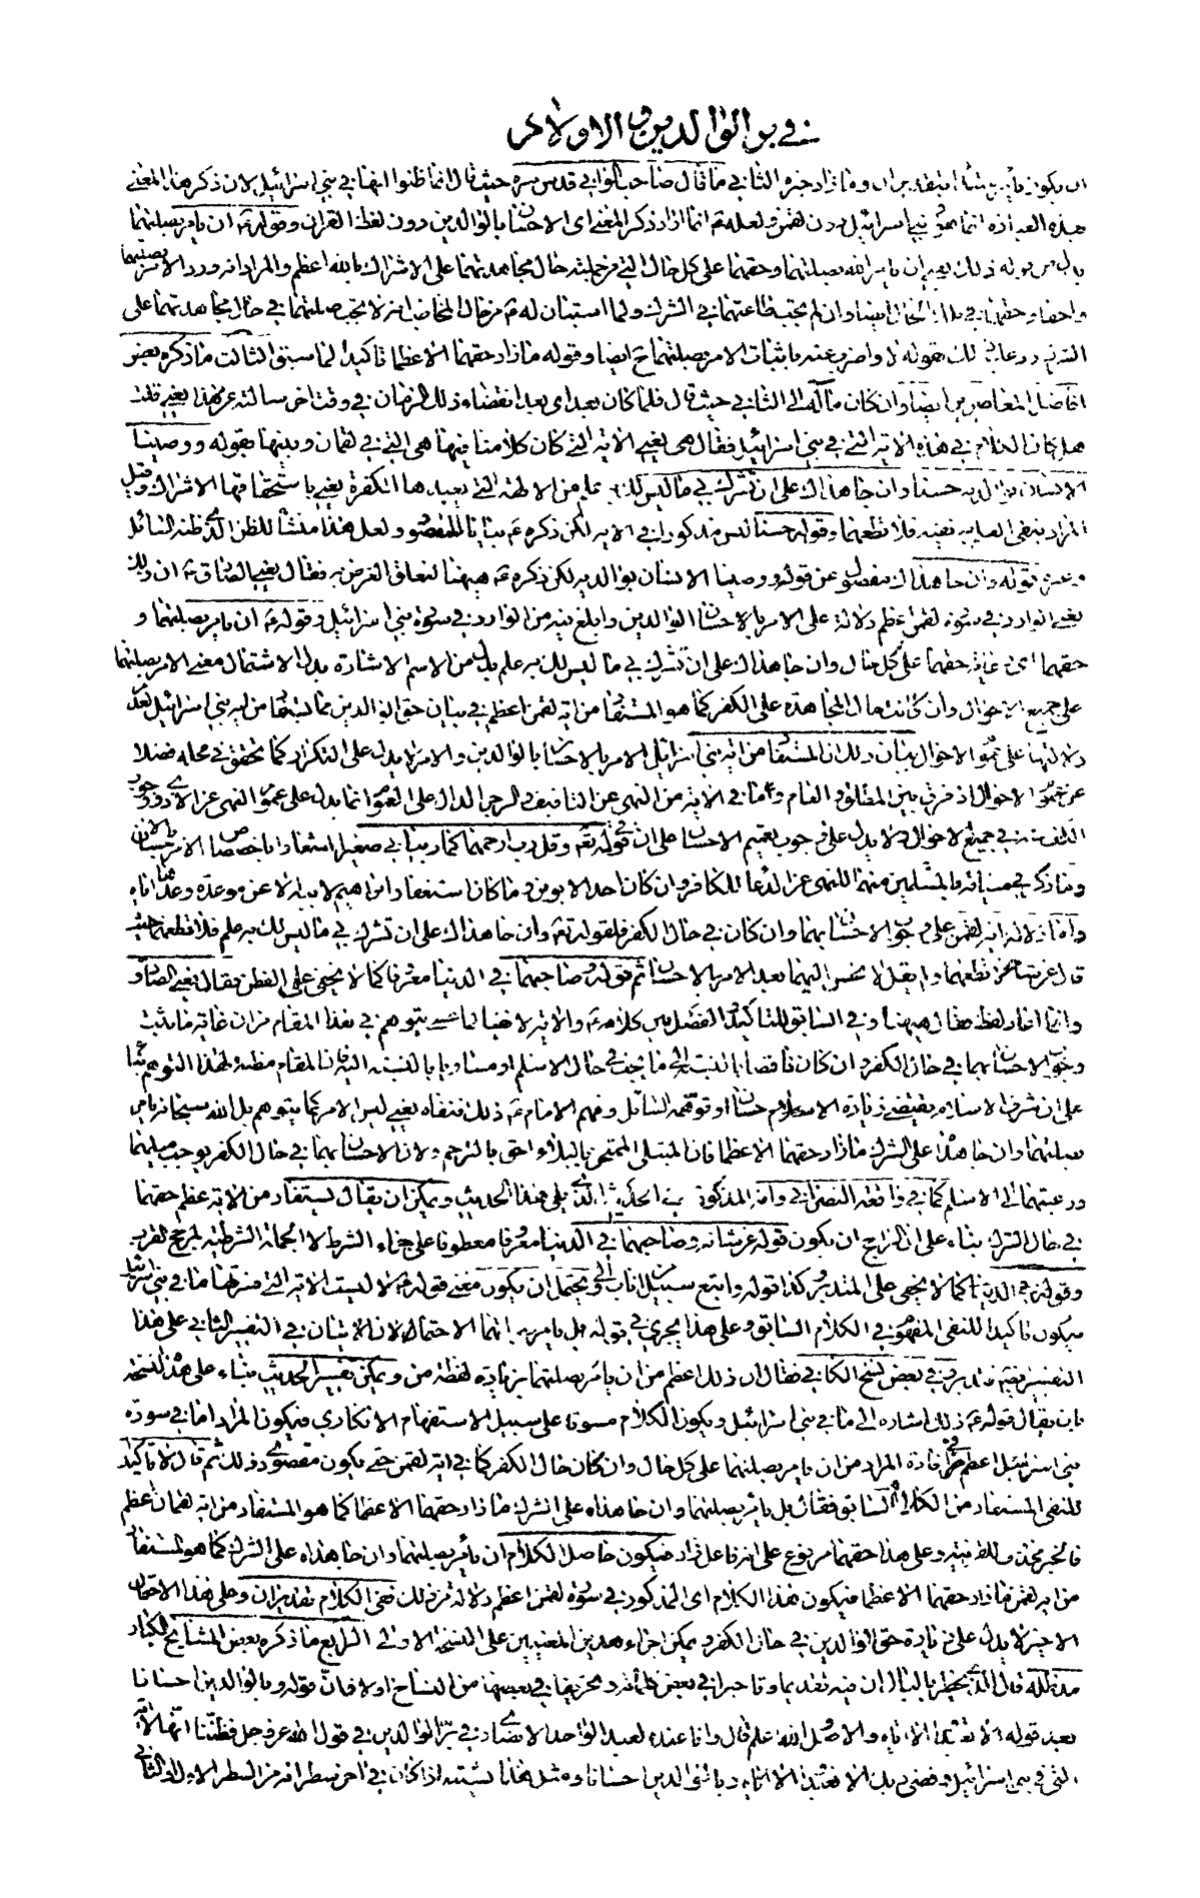 في بر الوالدين والاولاد
ان يكون يأمر بتقدير ان وما زاد خبره الثاني ما قال صاحب الوافي قدس سره حيث قال انما ظنوا انها في بني اسرائيل لان ذكر هذا المعنى
بهذه العبارة انما هو في بني اسرائيل دون لقمن ولعله انما اراد ذكر المعنى اي الاحسان بالوالدين دون لفظ القران وقوله ان يأمر بصلتهما
ذلك يعني ان يأمر الله بصلتهما وحقهما على كل حال التي من جملته حال مجاهدتهما على الاشراك بالله اعظم والمراد انه ورد الامر بصلتهما
واحقاق حقهما في تلك الحال ايضا وان لم يجب طاعتهما في الشرك ولما استبان له من حال المخاطب انه لا يجب صلتهما في حال مجاهدتهما على
الشرك رد عليه ذلك بقوله لا واضرب عنه باثبات الامر بصلتهما ح ايضا وقوله ما زاد حقهما الا عظما تاكيد لما سبق الثالث ما ذكره بعض
افاضل المعاصرين ايضا وان كان مآله الى الثاني حيث قال فلما كان بعد اي بعد انقضاء ذلك الزمان في وقت اخر سالته عن هذا يعني قلت
هل كان الكلام في هذه الاية التي في بني اسرائيل فقال هي يعني الاية التي كان كلامنا فيها هي التي في لقمان وبينها بقوله ووصينا
الانسان بوالديه حسنا وان جاهداك على ان تشرك بي ما ليس لك به علم من الالهة التي يعبدها الكفرة يعني باستحقاقها الاشراك وقيل
المراد بنفي العلم به نفيه فلا تطعهما وقوله حسنا ليس مذكورا في الاية لكن ذكره بيانا للمقصود ولعل هذا منشأ للظن الذي ظنه السائل
قوله وان جاهداك مفصول عن قوله ووصينا الانسان بوالديه لكن ذكره هيهنا لتعلق الغرض به فقال يعني الصادق ان ذلك
يعني الوارد في سورة لقمن اعظم دلالة على الامر بالاحسان بالوالدين وابلغ فيه من الوارد في سورة بني اسرائيل وقوله ان يأمر بصلتهما و
حقهما اي رعاية حقهما على كل حال وان جاهداك على ان تشرك بي ما ليس لك به علم بدل من الاسم الاشارة بدل الاشتمال معنى الامر بصلتهما
على جميع الاحوال وان كانت حال المجاهدة على الكفر كما هو المستفاد من اية لقمن اعظم في بيان حق الوالدين مما يستفاد من اية بني اسرائيل لعدم
دلالتها على عموم الاحوال بيان ذلك ان المستفاد من اية بني اسرائيل الامر بالاحسان بالوالدين والامر لا يدل على التكرار كما تحقق في محله فضلا
عن عموم الاحوال اذ فرق بين المطلق والعام وما في الاية من النهي عن التأفيف والزجر الدال على العموم انما يدل على عموم النهي عن الاذى ووجوب
الكف عنه في جميع الاحوال ولا يدل على وجوب تعميم الاحسان على ان قوله تعالى وقل رب ارحمهما كما ربياني صغيرا اشعارا باختصاص الامر بالاحسان
بالمسلمين منهما للنهي عن الدعاء للكافر وان كان احد الابوين وما كان استغفار ابراهيم لابيه الا عن موعدة وعدها اياه
واما دلالة اية لقمن على وجوب الاحسان بهما وان كان في حال الكفر فلقوله وان جاهداك على ان تشرك بي ما ليس لك به علم فلا تطعهما حيث
قال عن شأنه فلا تطعهما ولم يقل لا تحسن اليهما بعد الامر بالاحسان ثم قوله وصاحبهما في الدنيا معروفا كما لا يخفى على الفطن فقال يعني الصادق
وانما اعاد لفظ فقال هيهنا وفي السابق للتاكيد والفصل بين كلامه والاية لا خفا لما عسى يتوهم في هذا المقام من ان غاية ما يثبت
وجوب الاحسان بهما في حال الكفر وان كان ناقصا بالنسبة الى ما يجب في حال الاسلام او مساويا بالنسبة اليه فان المقام مظنة لهذا التوهم بناء
على ان شرف الاسلام يقتضي زيادة الاحسان او توهمه السائل وفهم الامام ذلك فنفاه يعني ليس الامر كما يتوهم بل الله سبحانه يامر
بصلتهما وان جاهداه على الشرك ما زاد حقهما الا عظما فان المبتلى الممتحن بالبلاء احق بالترحم ولان الاحسان بهما في حال الكفر يوجب ميلهما
ورغبتهما الى الاسلام كما في واقعة النصراني وامه المذكورة في الحديث الذي يلي هذا الحديث ويمكن ان يقال يستفاد من الاية عظم حقهما
في حال الشرك بناء على ان الراجح ان يكون قوله عز شأنه وصاحبهما في الدنيا معروفا معطوفا على جزاء الشرط لا الجملة الشرطية لمرجح القرب
وقوله في الدنيا كما لا يخفى على المتدبر وكذا قوله واتبع سبيل من اناب الي ويحتمل ان يكون معنى قوله لا ليست الاية التي فسرتها ما في بني اسرائيل
فيكون تاكيدا للنفي المفهوم في الكلام السابق وعلى هذا يجري في قوله بل يأمر به انما الاحتمالان الاتيان في التفسير الثاني على هذا
التفسير في بعض نسخ الكافي فقال ان ذلك اعظم من ان يأمر بصلتهما بزيادة لفظة من ويمكن تفسير الحديث بناء على هذه النسخة
بان يقال قوله ذلك اشارة الى ما في بني اسرائيل ويكون الكلام مسوقا على سبيل الاستفهام الانكاري فيكون المراد اما في سورة
بني اسرائيل اعظم في افادة المراد من ان يأمر بصلتهما على كل حال وان كان حال الكفر كما في اية لقمن حتى يكون مقصودي ذلك ثم قال لا تاكيدا
للنفي المستفاد من الكلام السابق فقال بل يأمر بصلتهما وان جاهداه على الشرك ما زاد حقهما الا عظما كما هو المستفاد من اية لقمان اعظم
فالخبر محذوف للقرينة وعلى هذا حقهما مرفوع على انه فاعل زاد فيكون حاصل الكلام ان يأمر بصلتهما وان جاهداه على الشرك كما هو المستفاد
من اية لقمن ما زاد حقهما الا عظما فيكون هذا الكلام اي المذكور في سورة لقمن اعظم دلالة من ذلك ففي الكلام تقديران وعلى هذا الاحتمال
الاخير لا يدل على زيادة حق الوالدين في حال الكفر ويمكن اجراء هذين المعنيين على النسخة الاولى الرابع ما ذكره بعض المشايخ الكبار
مد ظله قال الذي يخطر بالبال ان فيه تقديما وتاخيرا في بعض كلماته وتحريفا في بعضها من النساخ اولا فان قوله وبالوالدين احسانا
بعد قوله الا تعبدوا الا اياه والاصل والله اعلم قال وانا عنده لعبد الواحد الانصاري في بر الوالدين في قول الله عز وجل فظننا انها الاية
التي في بني اسرائيل وقضى ربك الا تعبدوا الا اياه وبالوالدين احسانا ومثل هذا يشتبه اذا كان في اخر سطر انه من السطر الاول والثاني